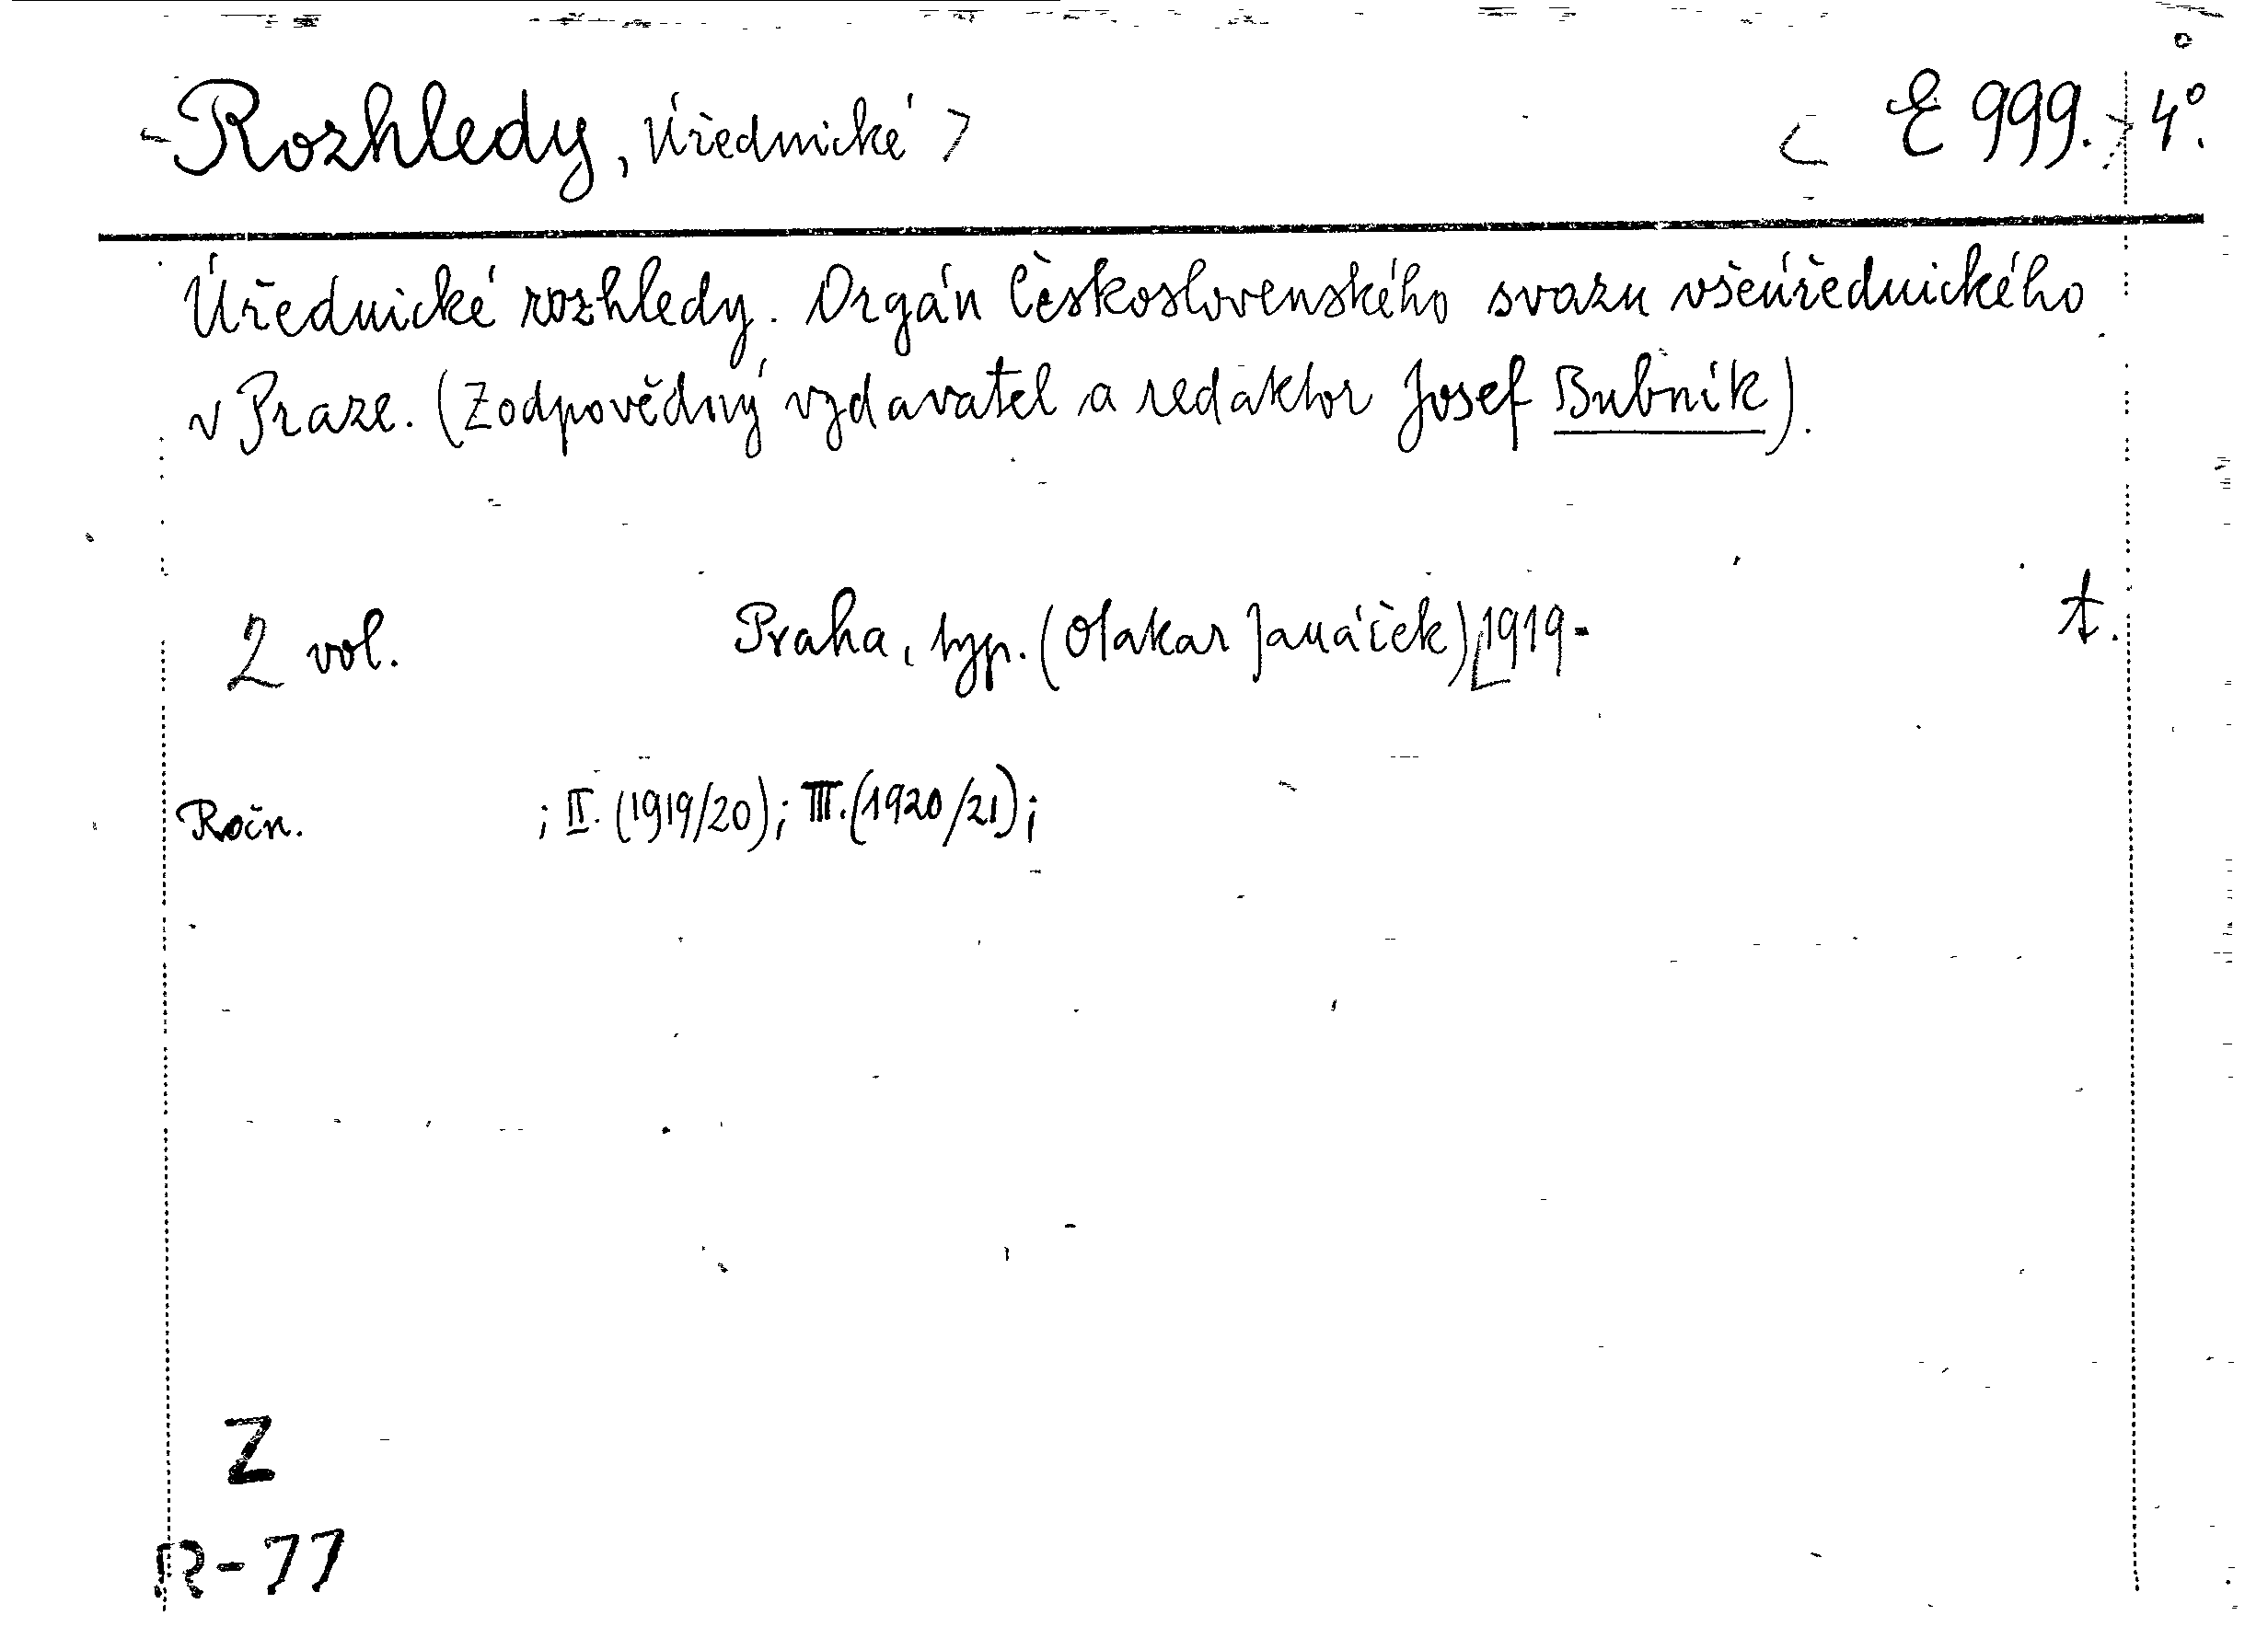 Rozhledy, Úřednické > < E 999. > 4°.
Úřednické rozhledy. Orgán Československého svazu všeúřednického
v Praze. (Zodpovědný vydavatel a redaktor Josef Bubník).
2 vol. Praha, typ. (Otakar Janáček) [1919- t.
Ročn. ; II. (1919/20); III. (1920/21);
Z
R-77